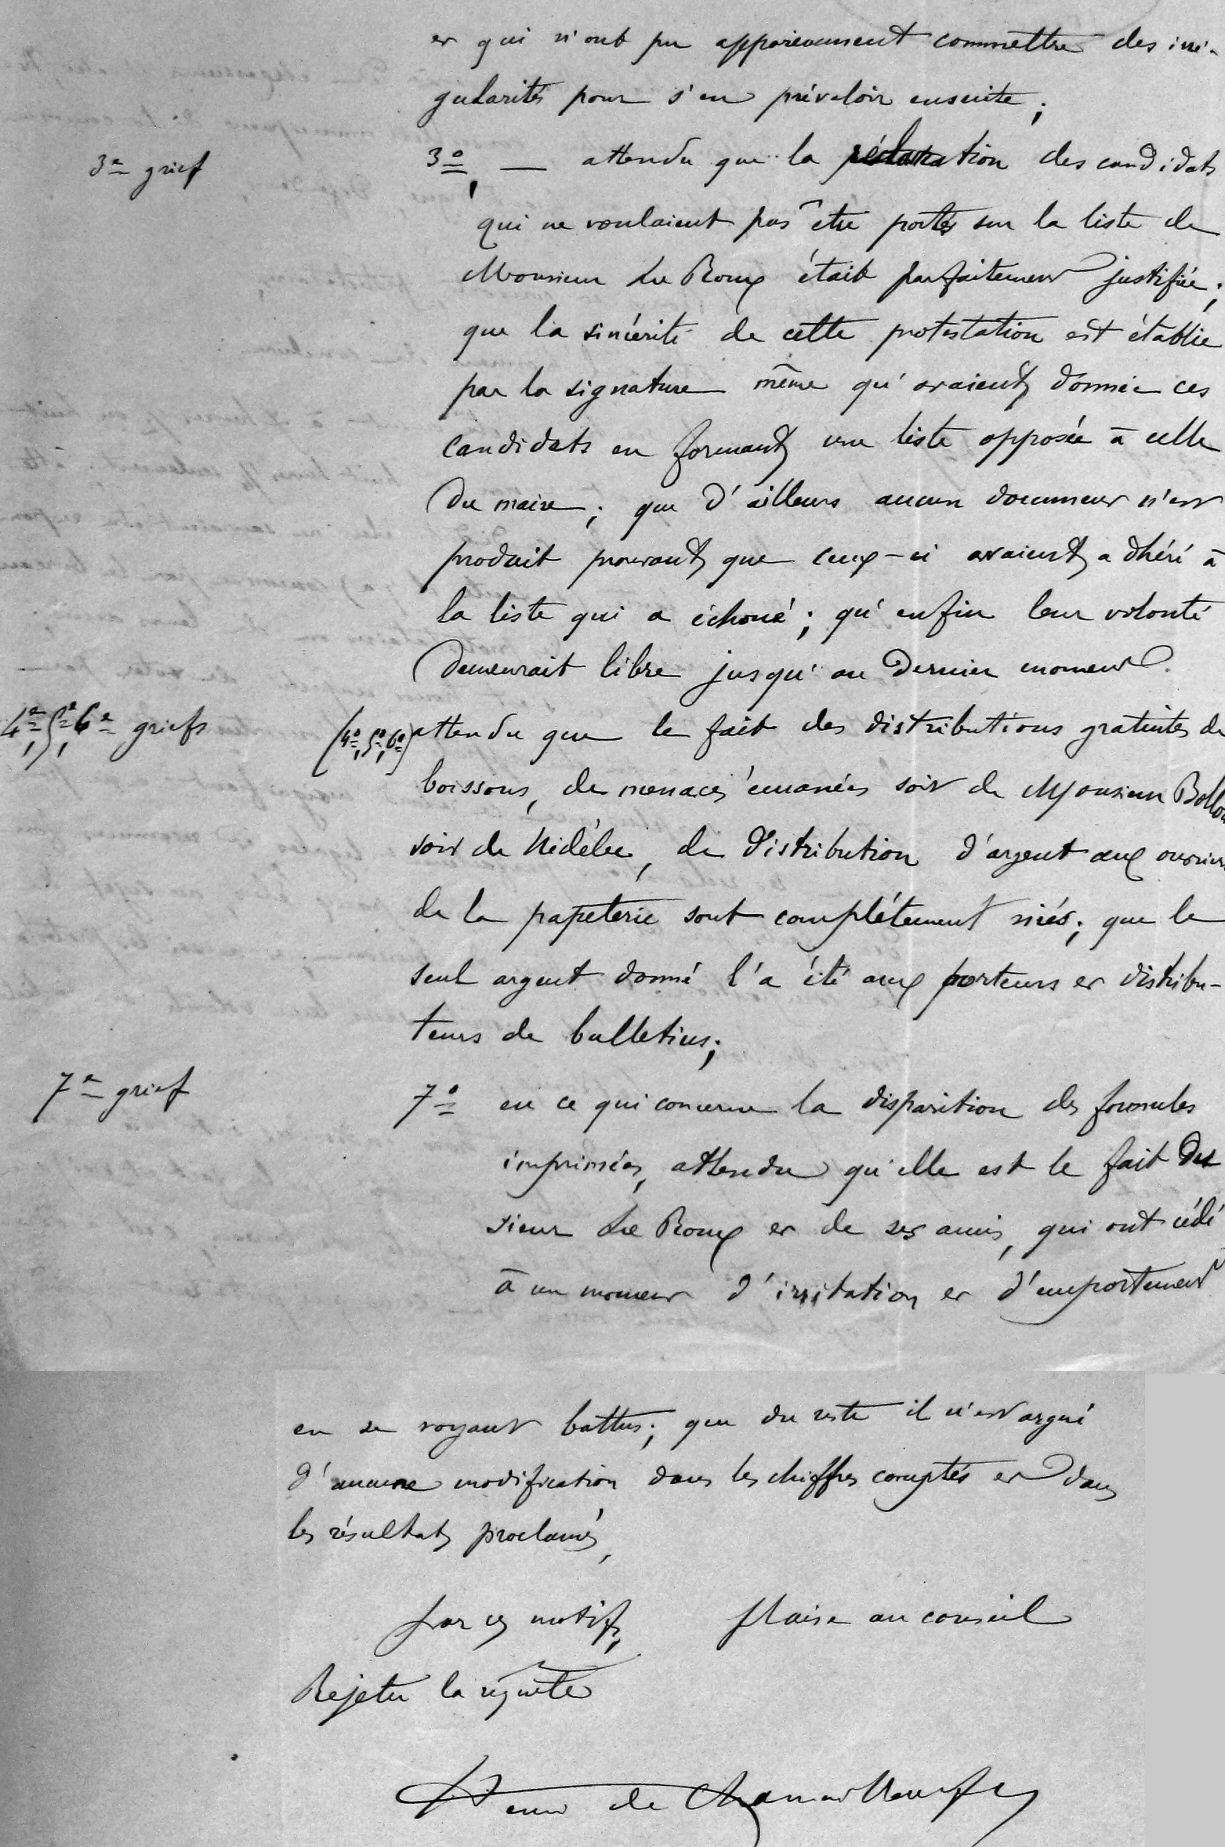 et qui n'ont pu apparemment commettre des irré-
gularités pour s'en prévaloir ensuite;
3e grief
3o, — attendu que la réclamation des candidats
qui ne voulaient pas être portés sur la liste de
Monsieur Le Roux était parfaitement justifiée;
que la sincérité de cette protestation est établie
par la signature même qu'avaient donnée ces
candidats en formant une liste opposée à celle
du maire; que d'ailleurs aucun document n'est
produit prouvant que ceux-ci avaient adhéré à
la liste qui a échoué; qu'enfin leur volonté
demeurait libre jusqu'au dernier moment.
4e, 5e, 6e griefs
(4o, 5o, 6o) attendu que le fait des distributions gratuites de
boissons, de menaces émanées soit de Monsieur Bolloré
soit de Nédélec, de distribution d'argent aux ouvriers
de la papeterie sont complétement niés; que le
seul argent donné l'a été aux porteurs et distribu-
teurs de bulletins;
7e grief
7o en ce qui concerne la disparition des formules
imprimées, attendu qu'elle est le fait du
sieur Le Roux et de ses amis, qui ont cédé
à un moment d'irritation et d'emportement
en se voyant battus; que du reste il n'est argué
d'aucune modification dans les chiffres comptés et dans
les résultats proclamés,
par ces motifs, plaise au conseil
Rejeter la requête
Henri de Chamaillard